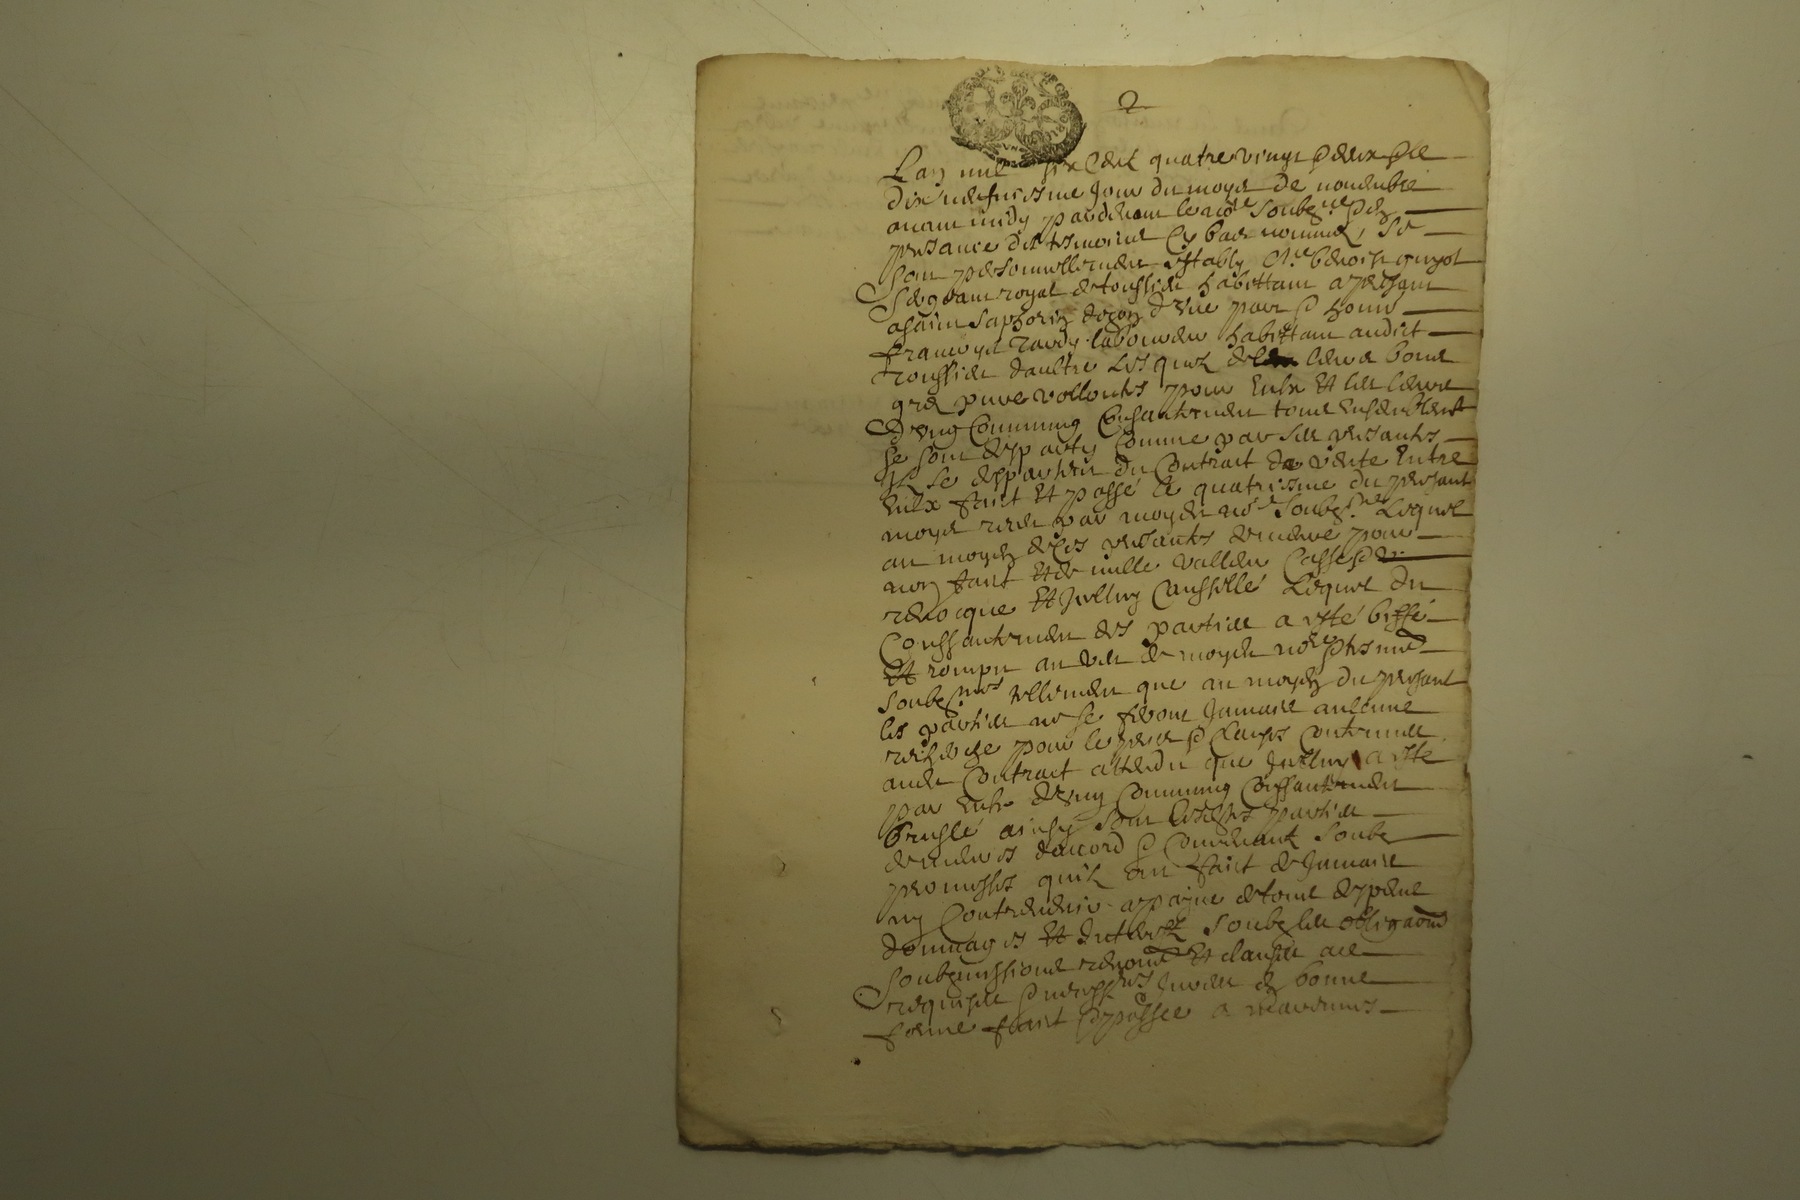 2
Lan mil six Cent quatre vingt & deux & le
dix neufviesme Jour du moys de novembre
avant midy pardevant le noe soubzne & en
presance des tesmoins Cy bas nommés, se
sont personnellement estably Me benoist guyot
sergeant royal de habittant a present
a sainct saphorin d'une part & honn
francoys tardy laboureur habittant audict
d'aultre lesquels de leurs bons
grés pures vollontés pour Eulx Et les leurs
d'ung Commung Consantement tous Ensemblemt
se sont despartis Comme par ses presantes
Ilz se despartent du Contract de vente Entre
Eulx faict Et passé le quatriesme du presant
moys receu par moyd noe soubzne Lequel
au moyen de ces presantes demeure pour
non faict Et de nulle valleur Cassé &
revocqué Et Icelluy Cansellé Lequel du
Conssantement des parties a esté biffé
Et rompu au veu de moyd noe & tesmoings
soubznés tellement que au moyen du presant
les parties ne se feront Jamais aulcune
recherche pour le prix & Causes Contenues
audit Contract attendu que Icelluy a esté
par Eulx d'ung Commung Conssantement
bruslé ainsy sont lesdites parties
demeurés d'accord & Convenant soubz
promesses qu'ilz ont faict de Jamais
ny Contrevenir a payne de tous despens
dommages Et Interestz soubz les obligaons
soubmissions renons Et clauses ace
requises & necesses Jurées En bonne
forme faict & passée a